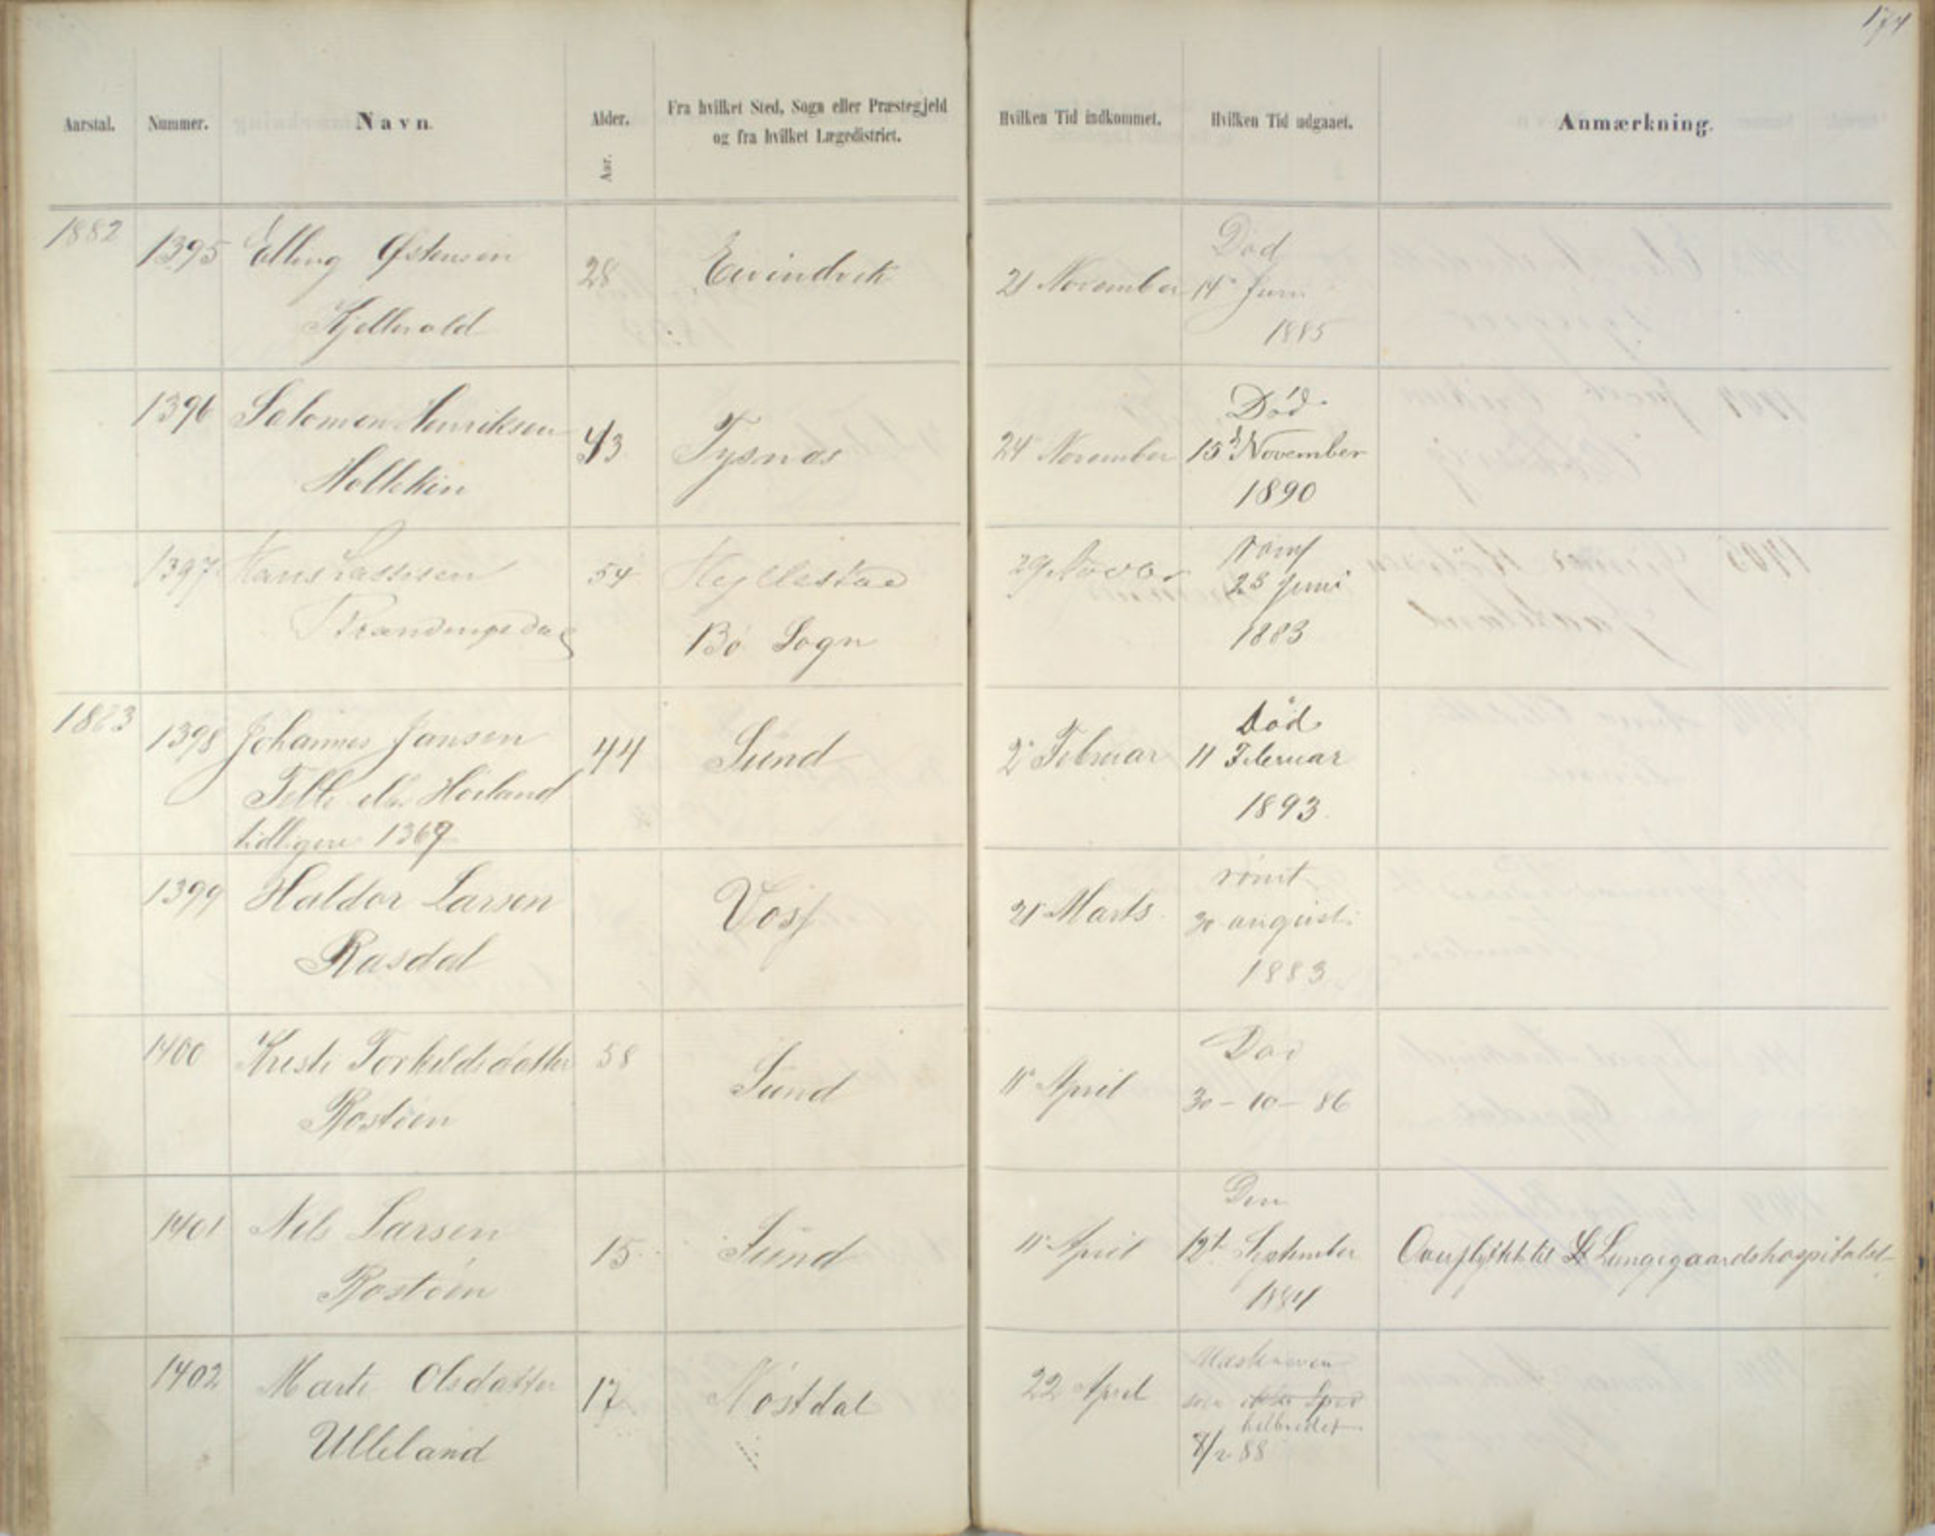 174
Aarstal. Nummer. Navn. Alder. Aar. Fra hvilket Sted, Sogn eller Præstegjeld
og fra hvilket Lægedistrict.
Hvilken Tid indkommet. Hvilken Tid udgaaet. Anmærkning.
1882 1395 Elling Østensen 28 Eivindvik 21 November Død
14 Juni
Kjellevold 1885
1396 Salomon Henriksen 43 Tysnæs 24 November Død
15d November
1890
1397 Hans Lassesen 54 Hyllestad 29 Novbr. rømt
Brændingsdag Bø Sogn 28 Juni
1883
1883 1398 Johannes Jansen 44 Sund 2 Februar Død
Telle eller Høiland 11 Februar
tidligere 1369 1893
1399 Haldor Larsen Voss 21 Marts rømt
Rasdal 30 august
1883
1400 Kristi Torkildsdatter 58 Sund 11 April Død
Rostøen 30-10-86
1401 Nils Larsen 15 Sund 11 April Den
Rostøen 12te September Overflyttet til Lungegaardshospitalet
1884
1402 Marte Olsdatter 17 Nøstdal 22 April
Ulleland som
helbredet
8/2 88